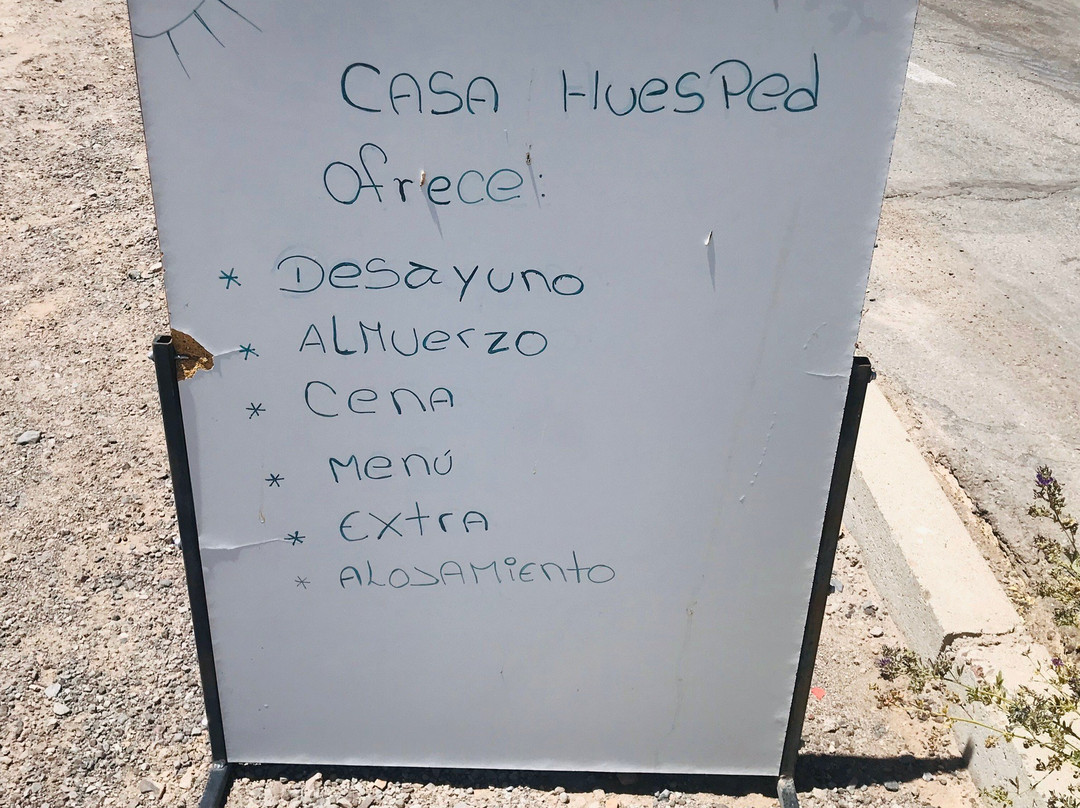 CASA HuesPed
Ofrece:
* Desayuno
* ALMuerzo
* CenA
* Menú
* ExtrA
* ALOJAMiento